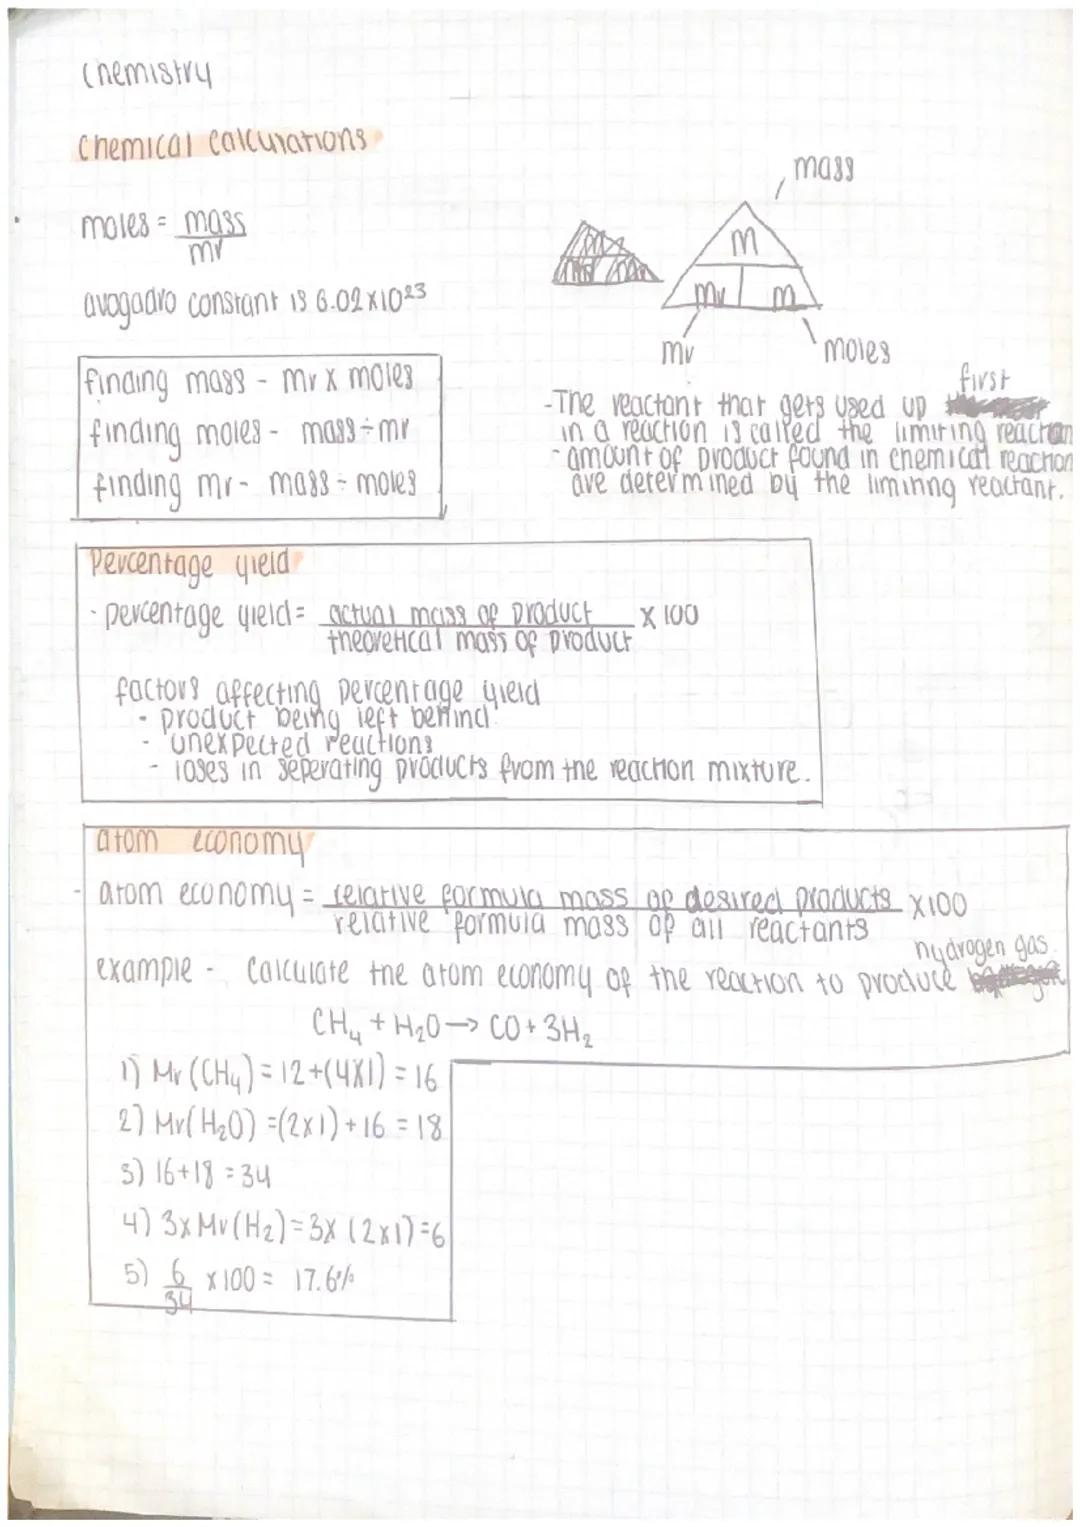 Chemistry
Chemical calculations
moles = mass
mr
avogadro constant is 6.02x10²³
mass
m
mr m
mr
moles
finding mass - mr x moles
finding moles - mass ÷ mr
finding mr - mass ÷ moles
first
-The reactant that gets used up
in a reaction is called the limiting reactan
- amount of product found in chemical reaction
are determined by the limiting reactant.
Percentage yield
· percentage yield = actual mass of product x 100
theoretical mass of product
factors affecting percentage yield
· product being left behind
- unexpected reactions
- loses in seperating products from the reaction mixture.
atom economy
- atom economy = relative formula mass of desired products x100
relative formula mass of all reactants
hydrogen gas.
example - calculate the atom economy of the reaction to produce
CH₄ + H₂O → CO + 3H₂
1) Mr (CH₄) = 12+(4x1) = 16
2) Mr(H₂O) =(2x1)+16 = 18
3) 16+18 = 34
4) 3x Mr (H₂) = 3x (2x1) = 6
5) 6 x 100 = 17.6%
34